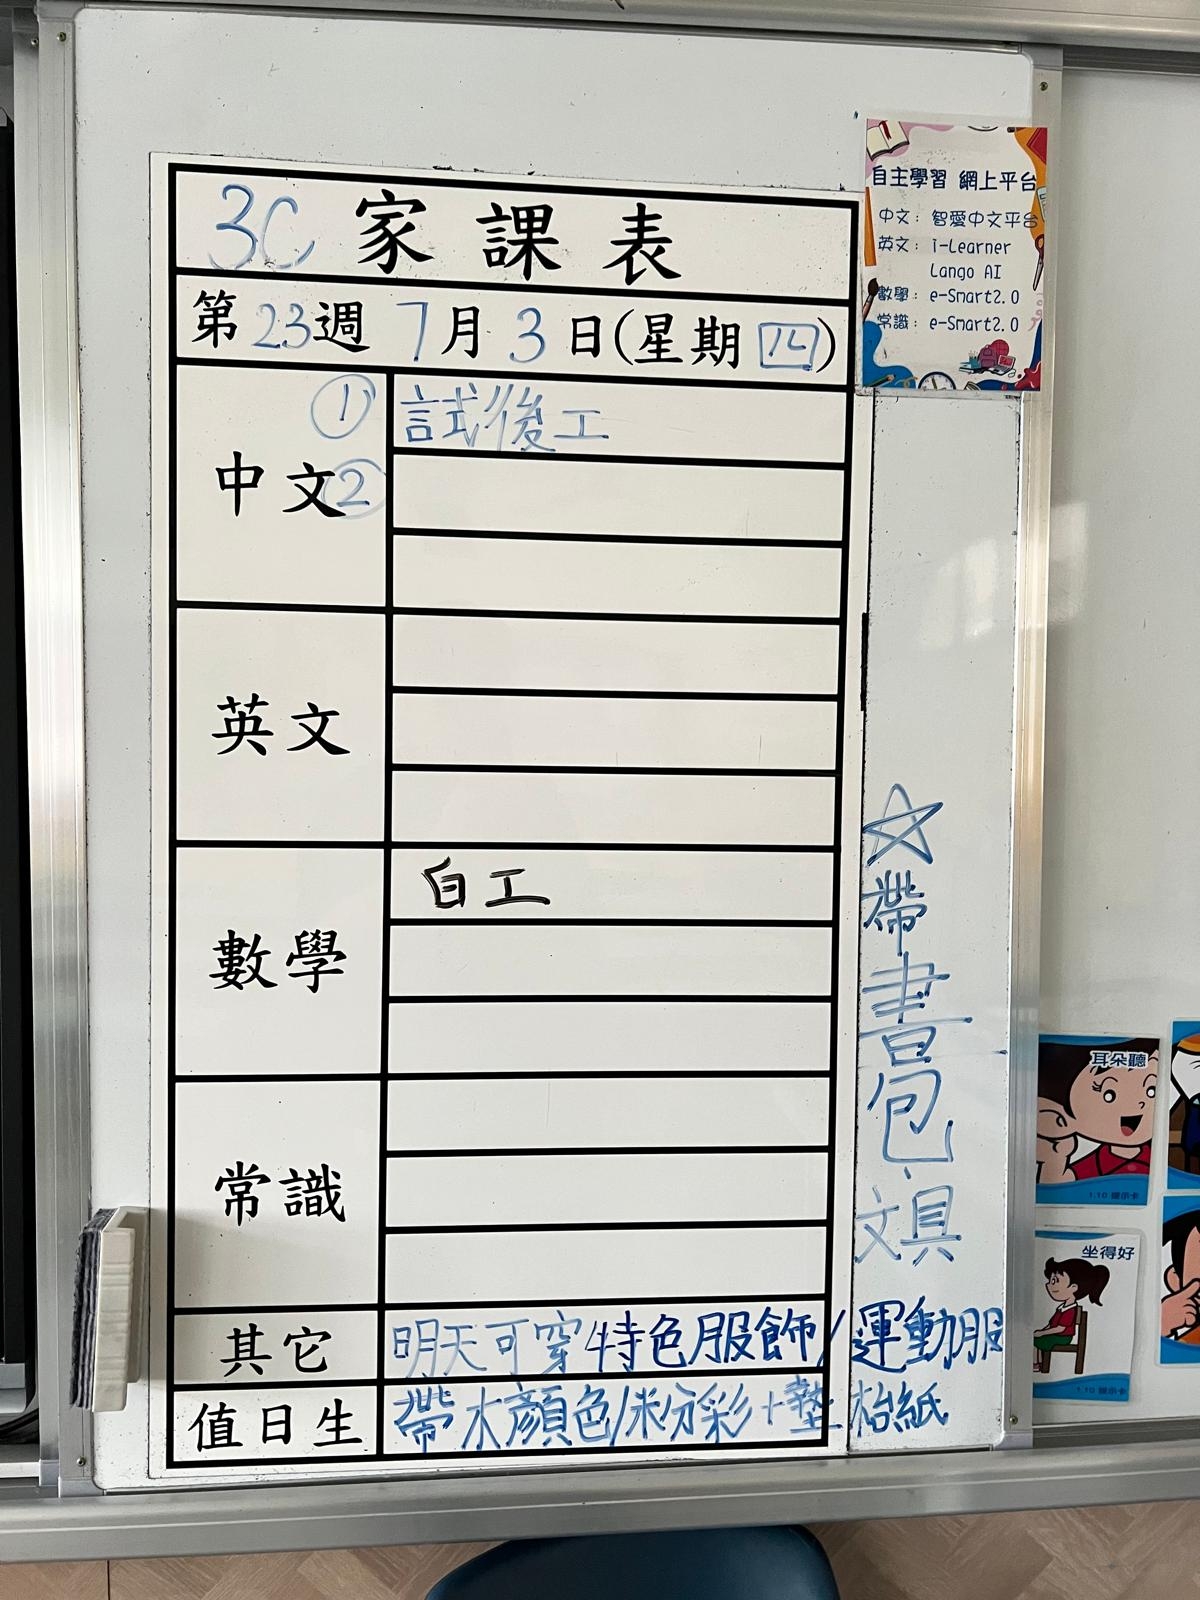 3C 家課表
第23週 7月3日(星期四)
中文
① 試後工
②
英文
數學
白工
常識
其它
明天可穿特色服飾/運動服
值日生
帶木顏色/粉彩+墊枱紙
☆帶書包、文具
自主學習 網上平台
中文：智愛中文平台
英文：i-Learner
Lango AI
數學：e-Smart2.0
常識：e-Smart2.0
耳朵聽
1.10 提示卡
坐得好
1.10 提示卡